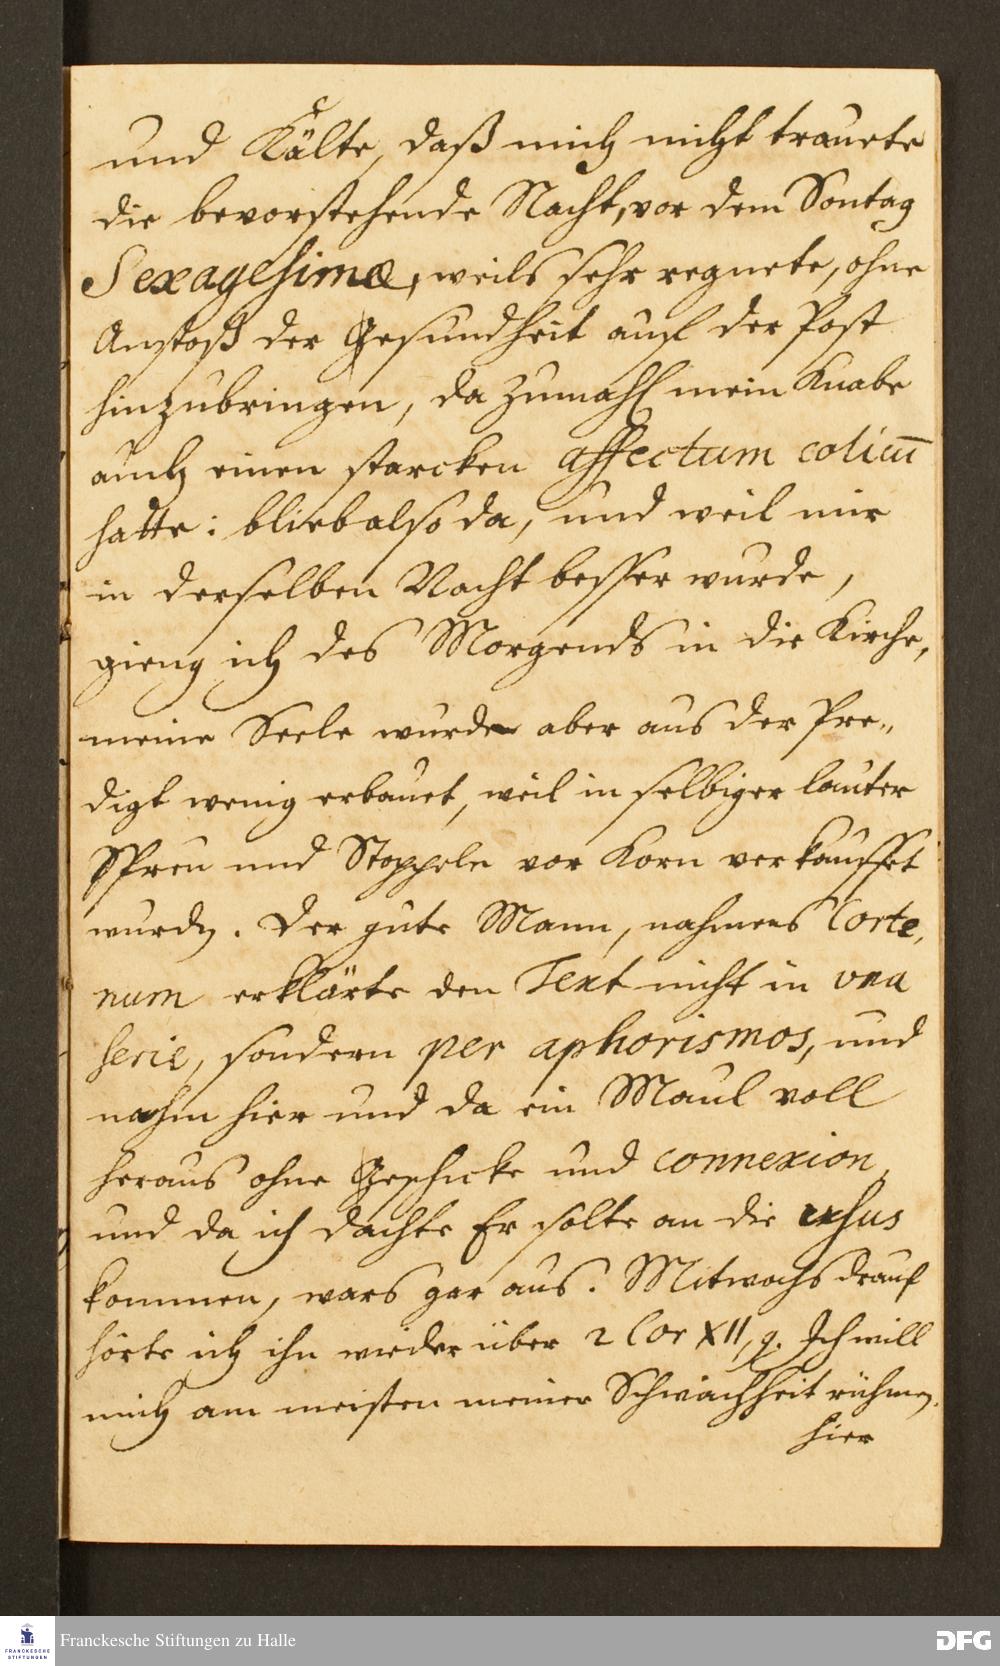 und Kälte, daß mich nicht trauete
die bevorstehende Nacht, vor dem Sontag
Sexagesimæ, weils sehr regnete, ohne
Anstoß der Gesundheit auf der Post
hinzubringen, da zumahl mein Knabe
auch einen starcken affectum colicū
hatte: blieb also da, und weil mir
in derselben Nacht besser wurde,
gieng ich des Morgends in die Kirche,
meine Seele wurde aber aus der Pre„
digt wenig erbauet, weil in selbiger lauter
Spreu und Stoppeln vor Korn verkauffet
wurdn. Der gute Mann, nahmens Corte,
num erklärte den Text nicht in una
serie, sondern per aphorismos, und
nahm hier und da ein Maul voll
heraus ohne Geschicke und connexion,
und da ich dachte Er solte an die usus
kommen, wars gar aus. Mitwochs drauf
hörte ich ihn wieder über 2 Cor XII, 9. Ich will
mich am meisten meiner Schwachheit rühmen.
hier
FRANCKESCHE STIFTUNGEN
Franckesche Stiftungen zu Halle
DFG